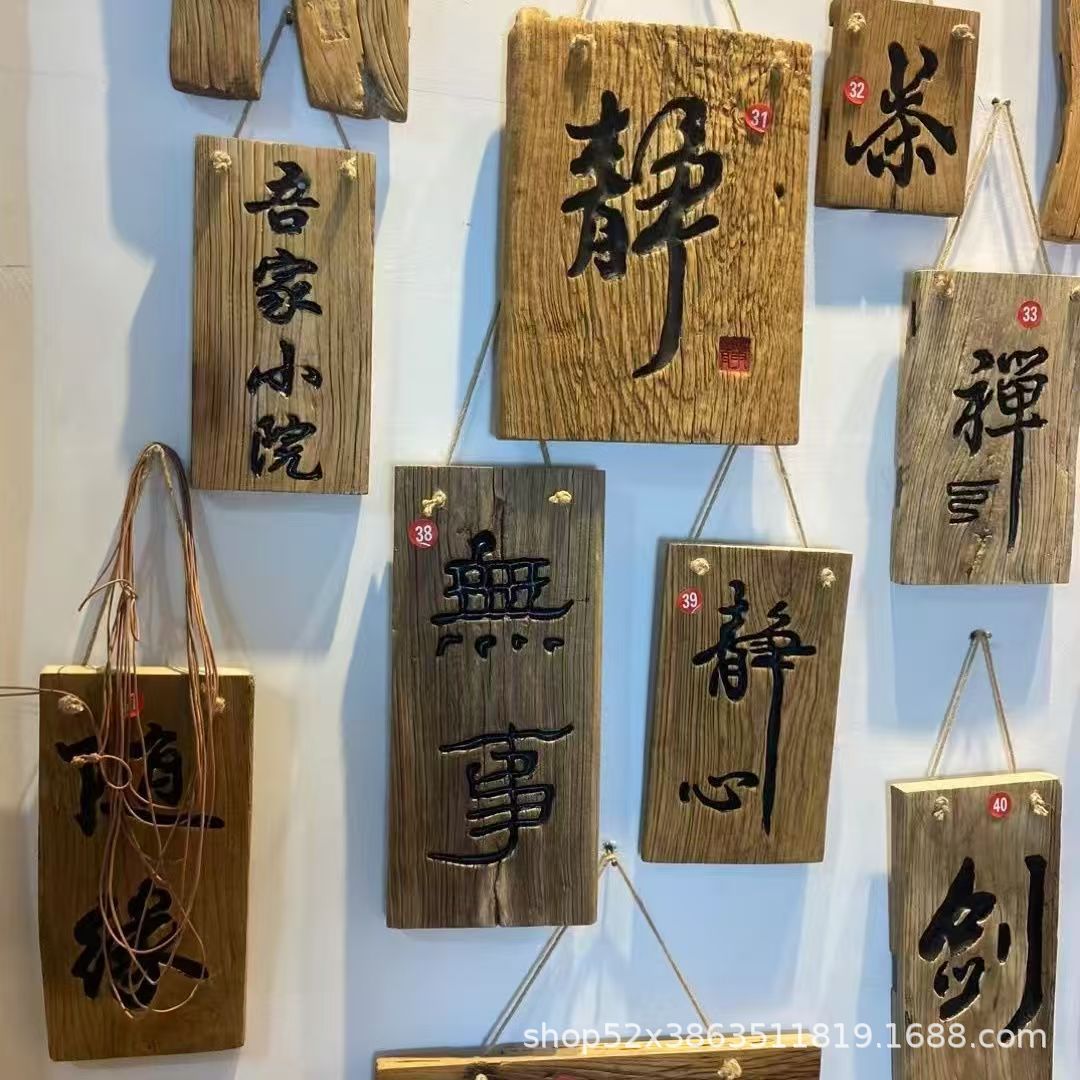 吾家小院
静
31
茶
32
禅
33
無事
38
静心
39
随缘
剑
40
shop52x3863511819.1688.com